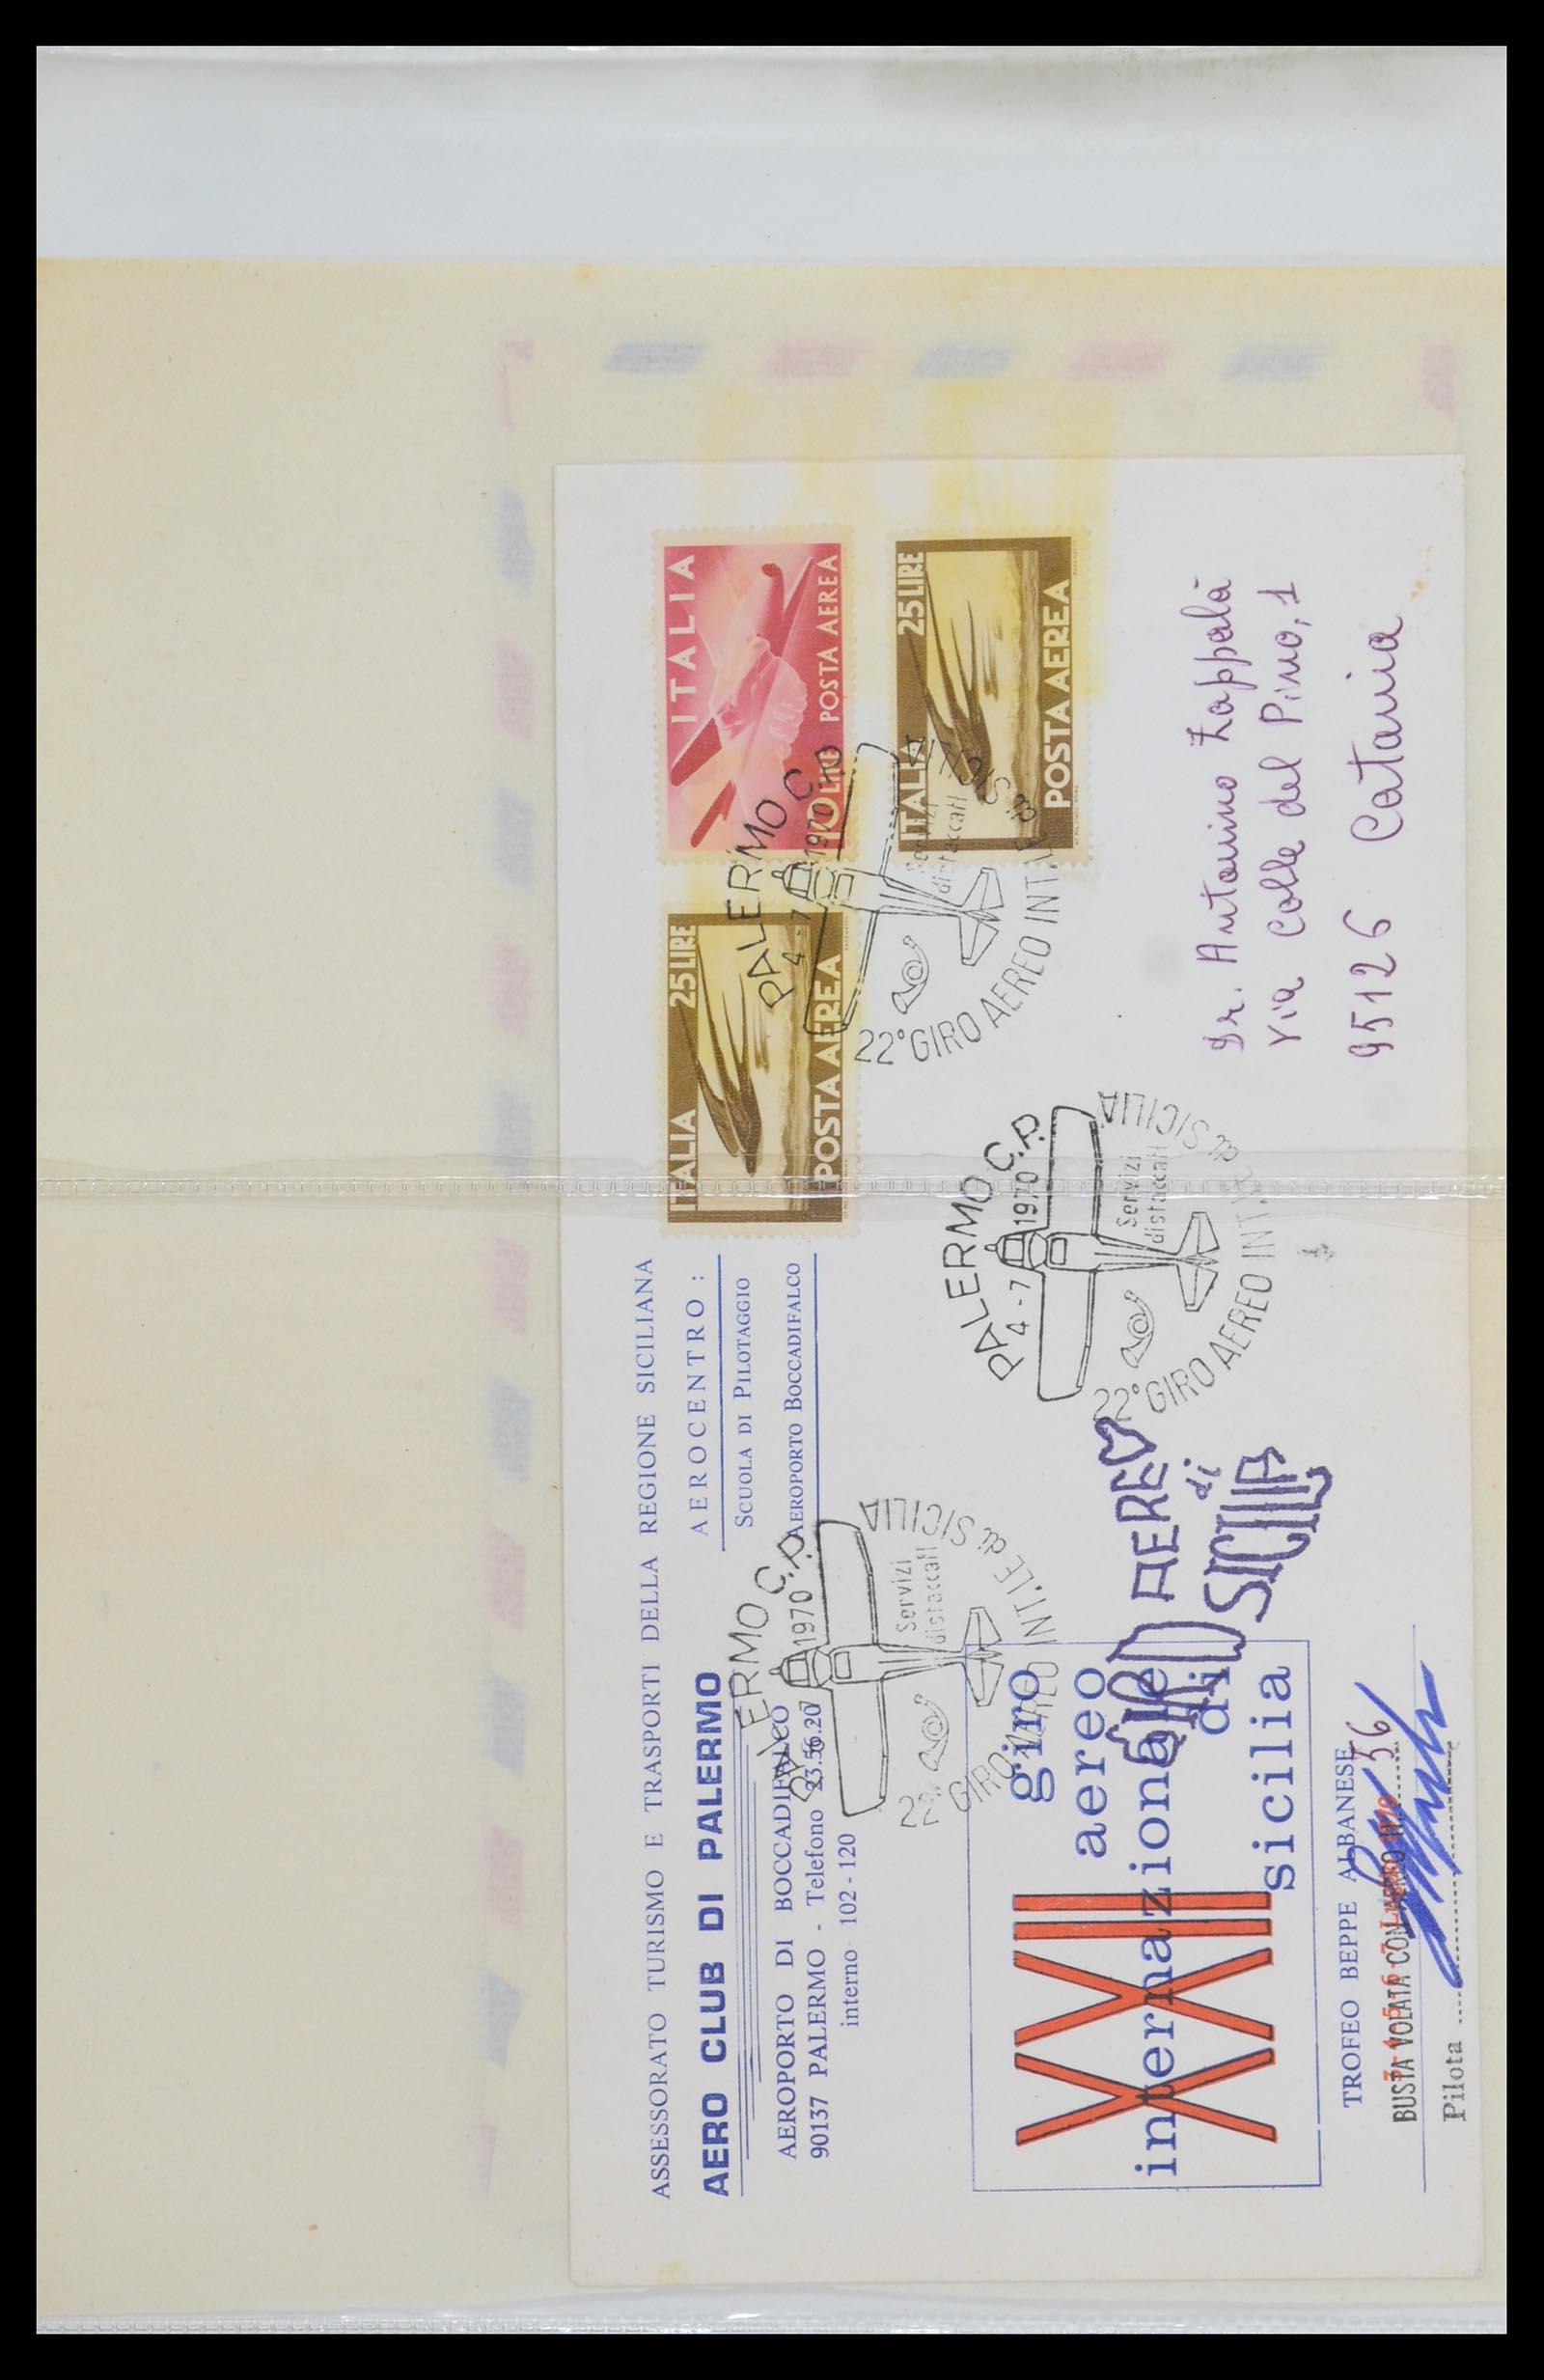 ASSESSORATO TURISMO E TRASPORTI DELLA REGIONE SICILIANA
AERO CLUB DI PALERMO
AEROPORTO DI BOCCADIFALCO
90137 PALERMO - Telefono 23.56.20
interno 102 - 120
AEROCENTRO :
SCUOLA DI PILOTAGGIO
AEROPORTO BOCCADIFALCO
ITALIA 25 LIRE
POSTA AEREA
ITALIA
10 LIRE POSTA AEREA
ITALIA 25 LIRE
POSTA AEREA
PALERMO C.P.
4-7 1970
Servizi
distaccati
22° GIRO AEREO INT.LE di SICILIA
PALERMO C.P.
4-7 1970
Servizi
distaccati
22° GIRO AEREO INT.LE di SICILIA
PALERMO C.P.
1970
Servizi
distaccati
22° GIRO AEREO INT.LE di SICILIA
XXII
giro
aereo
internazionale
di
sicilia
GIRO AEREO
di
SICILIA
TROFEO BEPPE ALBANESE
BUSTA VOLATA CON AEREO N. 36
Pilota
Dr. Antonino Zappalà
Via Colle del Pino, 1
95126 Catania